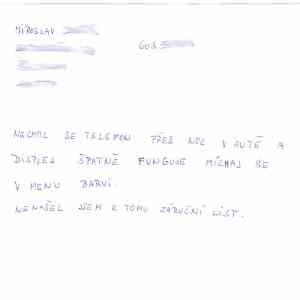 MIROSLAV
603
NECHAL SE TELEFON PŘES NOC V AUTĚ A
DISPLEJ ŠPATNĚ FUNGUJE MÍCHAJ SE
V MENU BARVI.
NENAŠEL JSEM K TOMU ZÁRUČNÍ LIST.